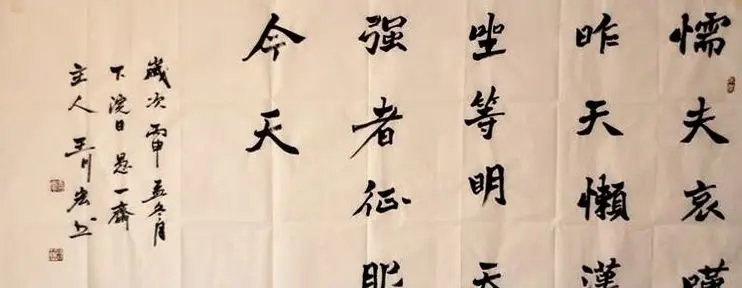 懦夫哀嘆
昨天懶漢
坐等明天
强者征服
今天
歲次丙申孟冬月
下浣日一齋
主人王川宏书